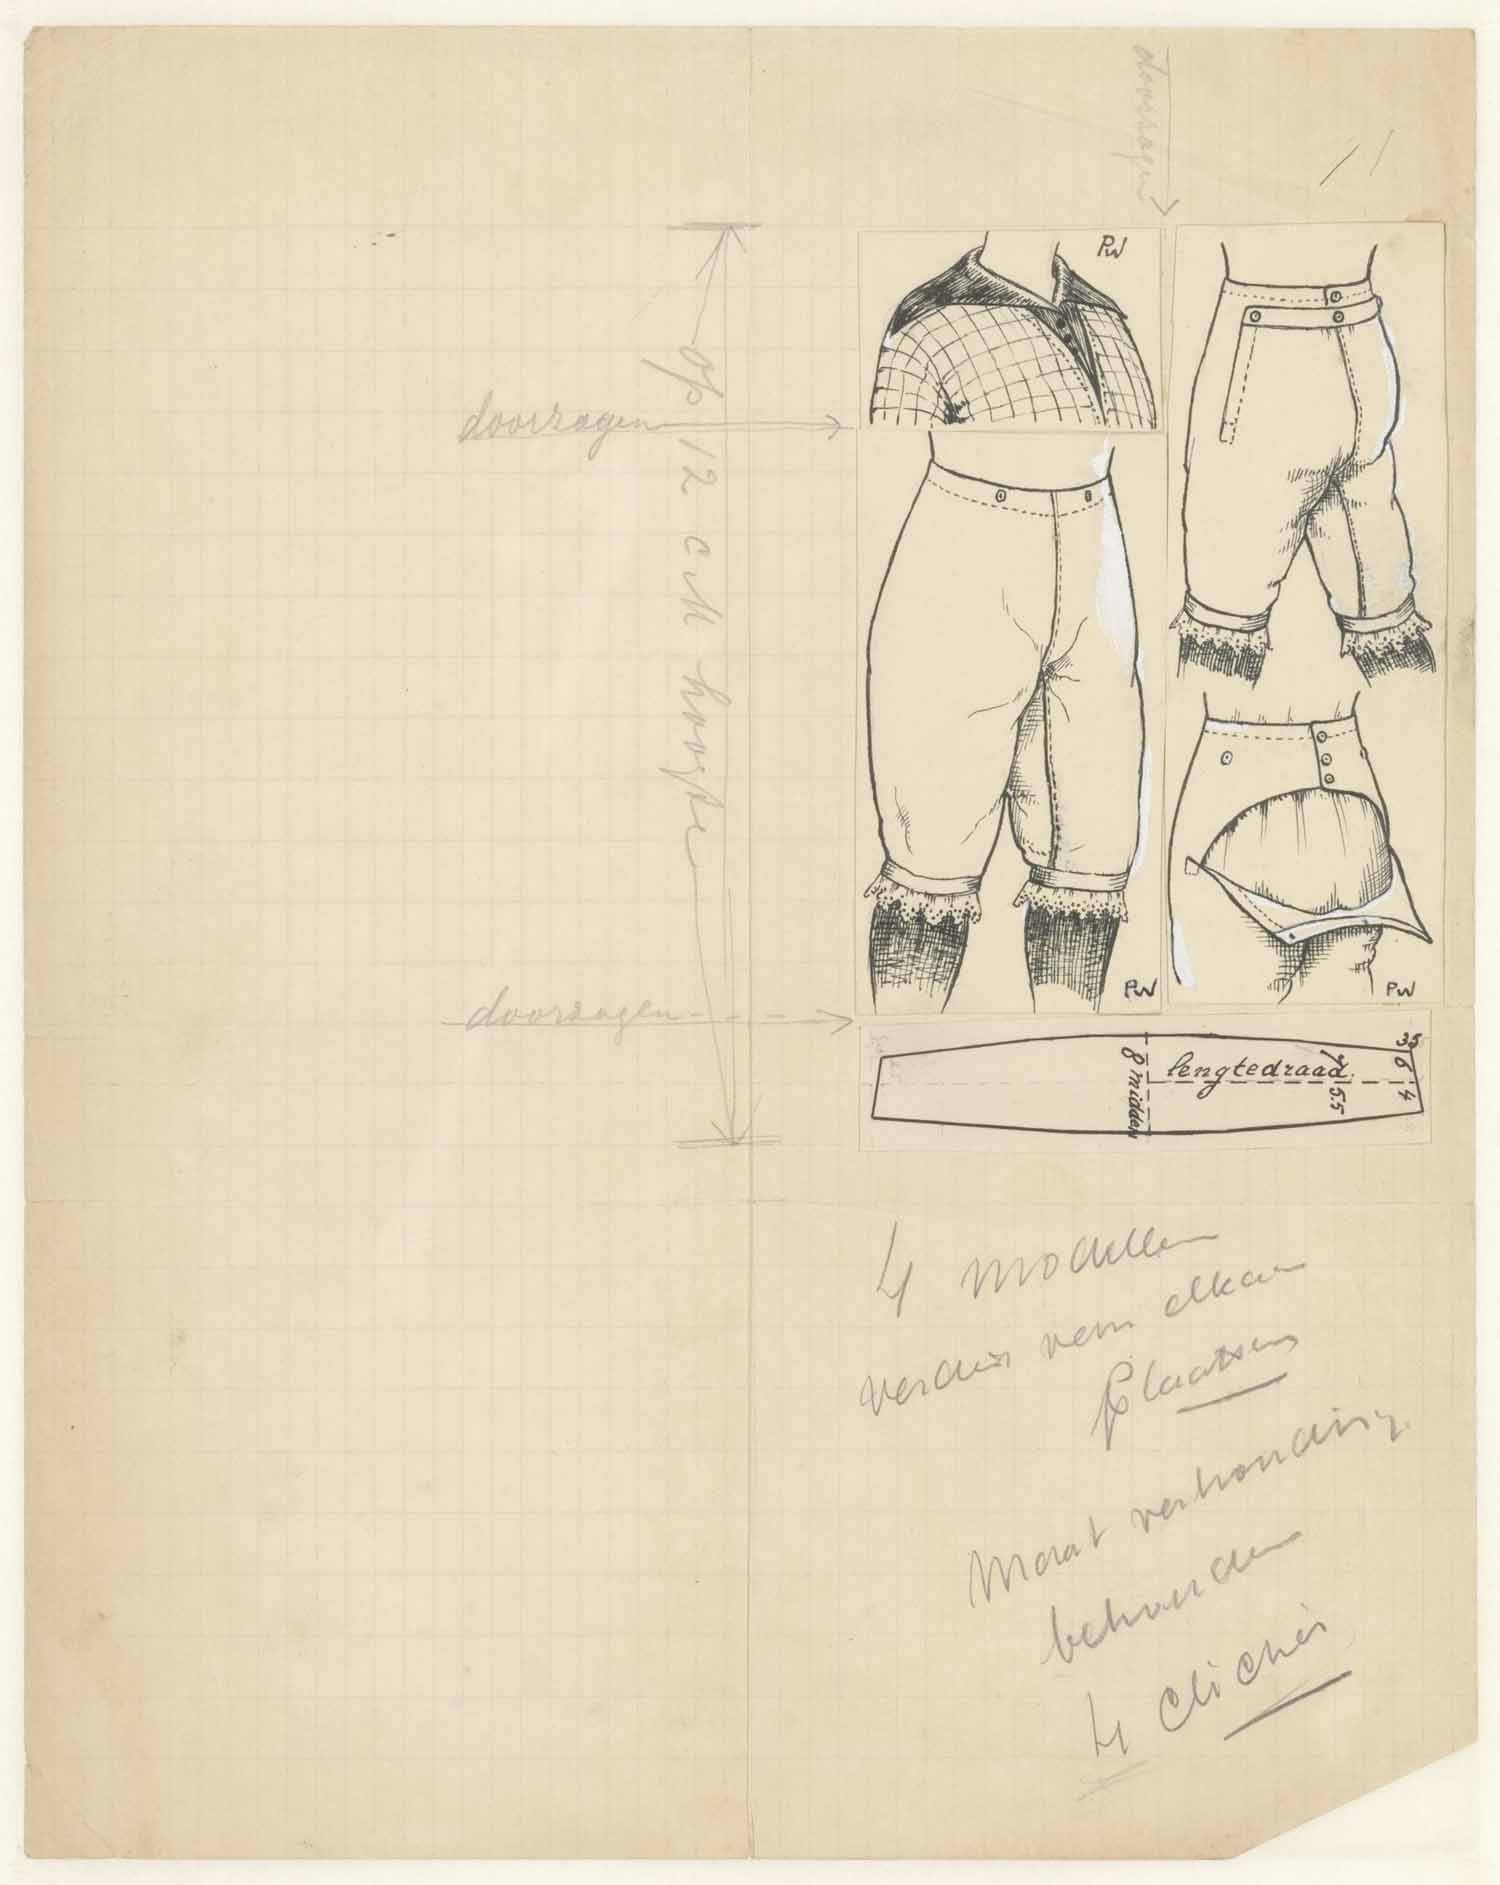 doorzagen
PW
doorzagen
op 12 cM hoogte
doorzagen
PW
PW
lengtedraad.
8 midden
7
5.5
35
6
4
4 modellen
verder van elkaar
plaatsen
Maat verhouding
behouden
4 cliche's